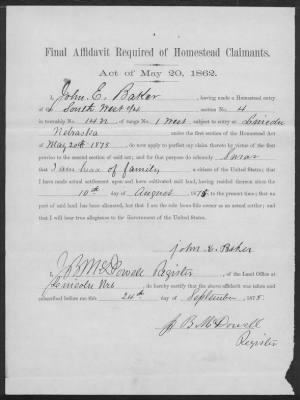 Final Affidavit Required of Homestead Claimants.
Act of May 20, 1862.
I, John E. Baker, having made a Homestead entry
of the South West 1/4 section No. 4
in township No. 14 N of range No. 1 West subject to entry at Lincoln
Nebraska under the first section of the Homestead Act
of May 20th 1873 do now apply to perfect my claim thereto by virtue of the first
proviso to the second section of said act; and for that purpose do solemnly swear
that I am head of family a citizen of the United States; that I
have made actual settlement upon and have cultivated said land, having resided thereon since the
10th day of August 1873, to the present time; that no
part of said land has been alienated, but that I am the sole bona fide owner as an actual settler; and
that I will bear true allegiance to the Government of the United States.
John E. Baker
I, J B McDowell Register, of the Land Office at
Lincoln Neb, do hereby certify that the above affidavit was taken and
subscribed before me this 24th day of September 1878.
J B McDowell
Register